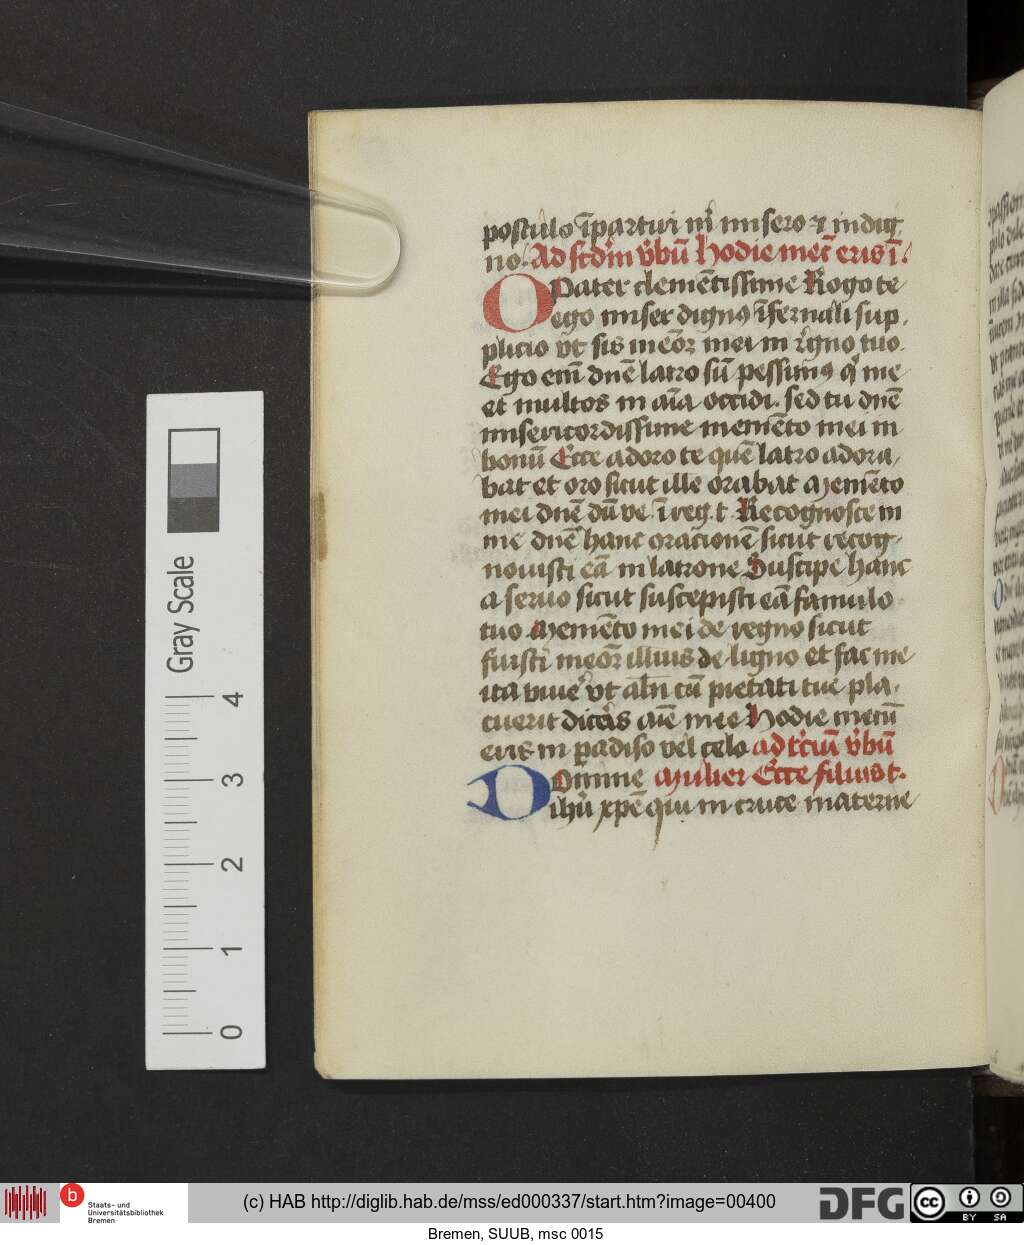 postulo īpartiri m̄ misero ⁊ indig
no. Ad scdm v̓bū hodie mec̄ eris ī.
O Pater clemētissime Rogo te
ego miser dignꝰ īfernali sup,
plicio vt sis meōꝝ mei in r̓gno tuo.
Ego em̄ dn̄e latro sū pessimꝰ qͥ me
et multos in aīa occidi. sed tu dn̄e
misericordissime memēto mei in
bonū Ecce adoro te quē latro adora,
bat et oro sicut ille orabat Memēto
mei dn̄e dū ve. ī reg. t. Recognosce in
me dn̄e hanc oracionē sicut recog-
nouisti eā in latrone Suscipe hanc
a seruo sicut suscepisti eā famulo
tuo Memēto mei de regno sicut
fuisti meōꝝ illius de ligno et fac me
ita viue̓ vt aln̄ cū pietati tue pla,
cuerit dice̓s aīe mee Hodie mecū
eris in ꝑadiso vel celo ad tc̓iū v̓bū
Domine Mulier Ecce filius t.
ihū xp̄e qui in cruce materne
Gray Scale
4
3
2
1
0
b
Staats- und
Universitätsbibliothek
Bremen
(c) HAB http://diglib.hab.de/mss/ed000337/start.htm?image=00400
DFG
cc
BY SA
Bremen, SUUB, msc 0015